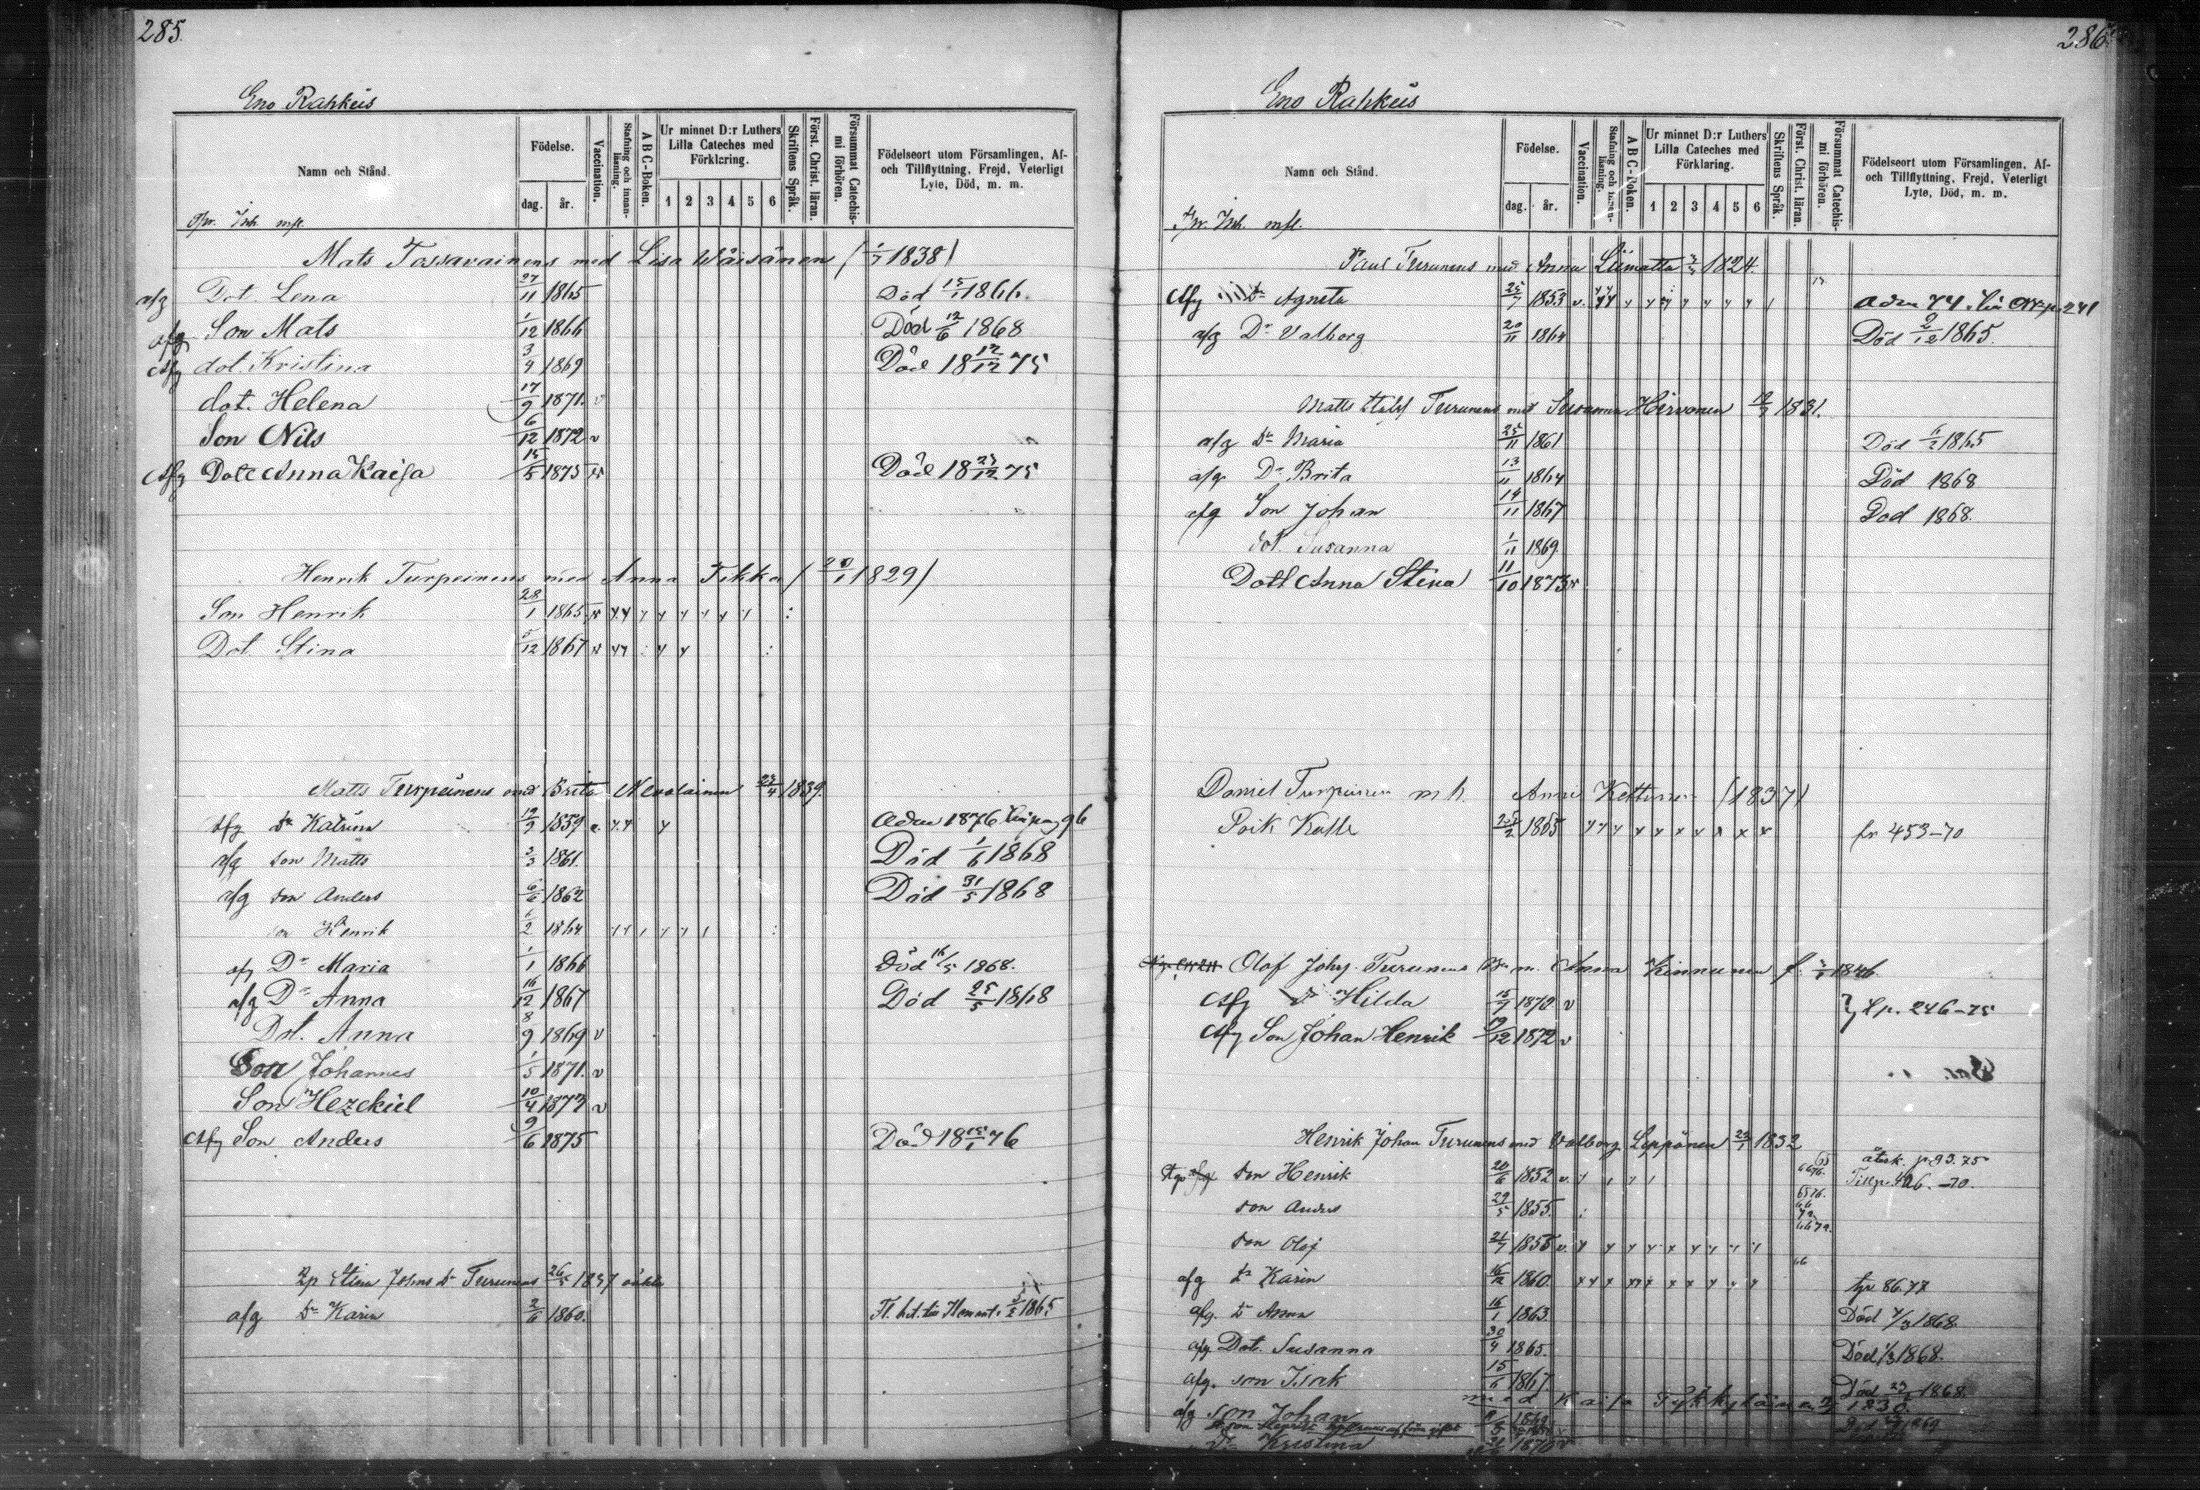 285.
Eno Rahkeis
Namn och Stånd.
Födelse.
dag.
år.
Vaccination.
Stafning och innanläsning.
A B C-Boken.
Ur minnet D:r Luthers Lilla Cateches med Förklaring.
1 2 3 4 5 6
Skriftens Språk.
Först. Christ. läran.
Försummat Catechismi förhören.
Födelseort utom Församlingen, Af- och Tillflyttning, Frejd, Veterligt Lyte, Död, m. m.
Inh. mfl.
Mats Tossavainens med Lisa Wäisänen (1/7 1838)
afg Dot. Lena 27/11 1865 Död 15/1 1866.
afg Son Mats 1/12 1866 Död 12/6 1868
afg dot. Kristina 3/4 1869 Död 18 12/12 75
dot. Helena 17/9 1871. v
Son Nils 6/12 1872 v
afg Dott Anna Kaisa 15/5 1875 Död 18 23/12 75
Henrik Turpeinens med Anna Tikka (20/1 1829)
Son Henrik 28/1 1865
Dot Stina 5/12 1867
Matts Turpeinens med Brita Nevalainen 23/4 1839.
afg Dr Katrina 12/9 1859 1876 96
afg son Matts 3/3 1861. Död 1/6 1868
afg son Anders 6/6 1862 Död 31/5 1868
son Henrik 6/2 1864
afg Dr Maria 1/1 1866 Död 16/5 1868.
afg Dr Anna 16/12 1867 Död 25/5 1868
Dot. Anna 8/9 1869 v
Son Johannes 1/5 1871. v
Son Hezekiel 10/4 1873 v
afg Son Anders 9/6 1875 Död 18 15/1 76
Stina Johns dr Turunens 26/5 1837
afg Dr Karin 2/6 1860. 1865
286.
Eno Rahkeis
Namn och Stånd.
Födelse.
dag.
år.
Vaccination.
Stafning och innanläsning.
A B C-Boken.
Ur minnet D:r Luthers Lilla Cateches med Förklaring.
1 2 3 4 5 6
Skriftens Språk.
Först. Christ. läran.
Försummat Catechismi förhören.
Födelseort utom Församlingen, Af- och Tillflyttning, Frejd, Veterligt Lyte, Död, m. m.
Inh. mfl.
Paul Turunens med Anna Liimatta 3/3 1824.
Afg Dr Agneta 25/7 1853 v. 74 241
afg Dr Valborg 20/11 1864 Död 9/12 1865.
Matts Turunens med Susanna Hirvonen 12/7 1831.
afg Dr Maria 25/11 1861 Död 6/2 1865
afg Dr Brita 13/11 1864 Död 1868
afg Son Johan 14/11 1867 Död 1868.
dot. Susanna 1/11 1869
Dott Anna Stina 11/10 1873 v
Daniel Turpeinen m h. Anna Kettunen (1837)
Poik Kalle 1865 fr 453-70
Olof Johs. Turunens m. Anna Kinnunen f. 1846
Afg dr Hilda 15/7 1870 v p. 246-75
Afg Son Johan Henrik 19/12 1872 v
Henrik Johan Turunens med Valborg Leppänen 23/1 1832
son Henrik 20/6 1852 v. återk. p. 93. 75
Till p. 406.-70.
son Anders 29/5 1855.
son Olof 21/7 1858 v.
afg dr Karin 16/2 1860. 86. 77
afg. dr Anna 16/1 1863. Död 4/3 1868.
afg Dot. Susanna 30/4 1865. Död 1/3 1868.
afg. son Isak 15/6 1867. Död 1868.
med Kaisa Pykkyläinen 1830.
afg son Johan 1869
dr Kristina 1870 v